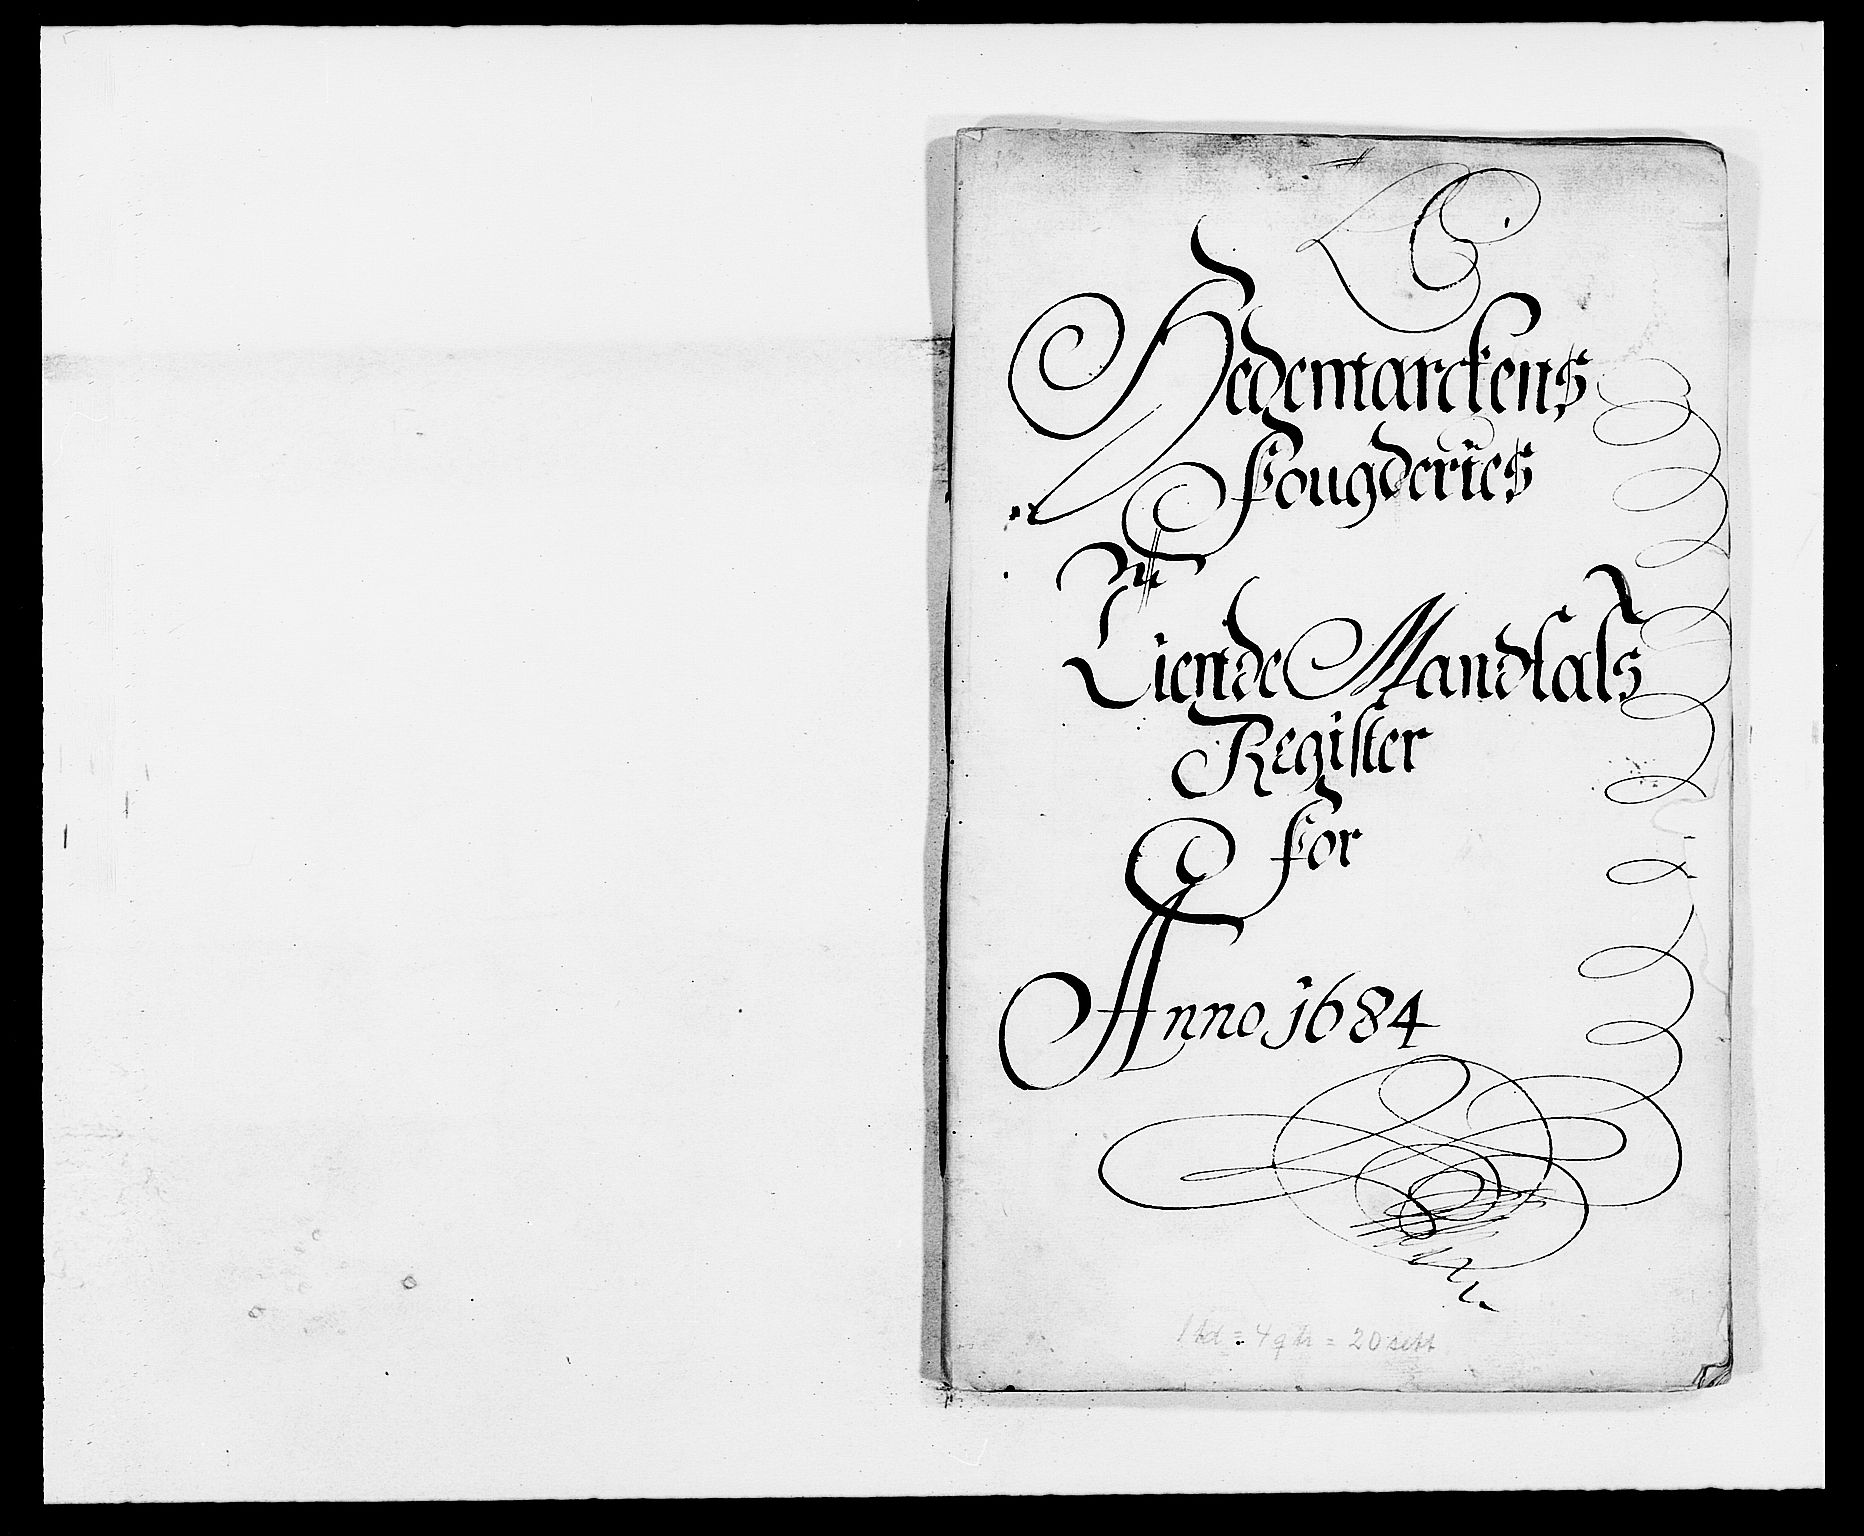 Hedemarckens
Fougderies
Tiende Mandtals
Register
For
Anno 1684
1 td = 4 qtr = 20 sett